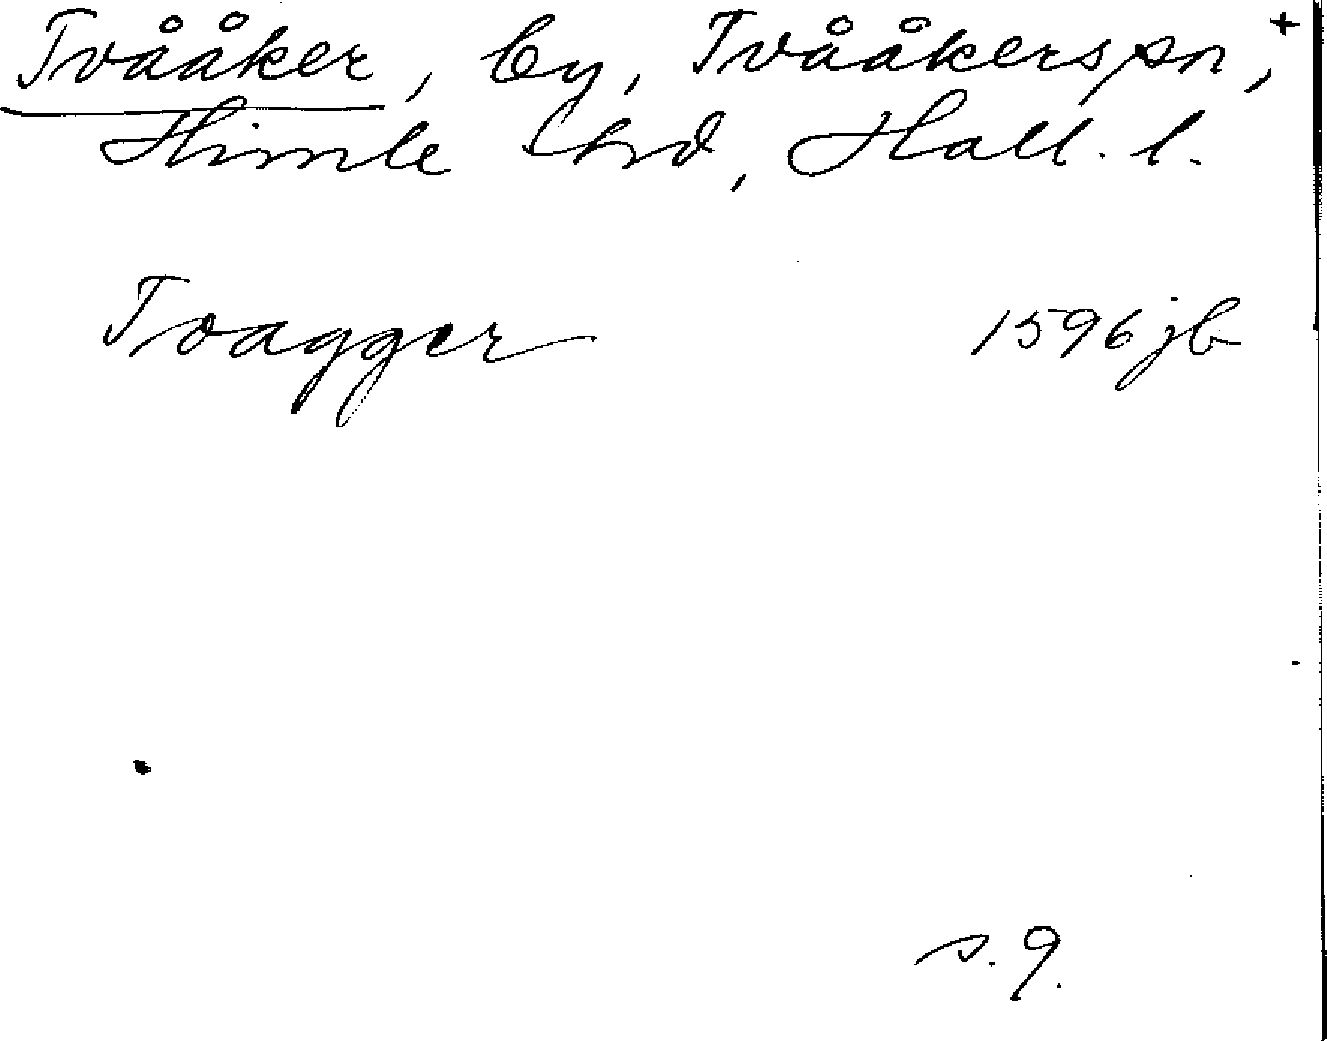 Tvååker, by, Tvååkers sn, +
Himle hd, Hall. l.
Tvagger 1596 jb
s. 9.